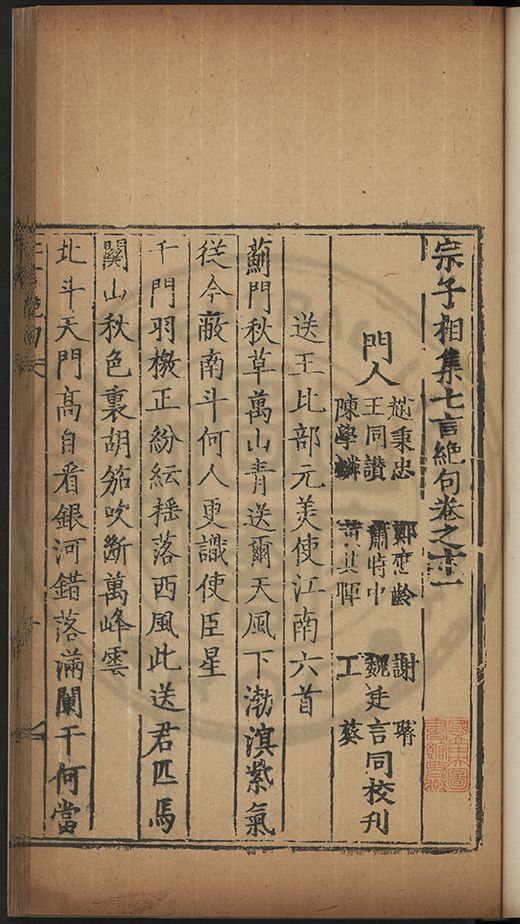 宗子相集七言絕句卷之十一
門人
趙秉忠 鄭應齡 謝
王同讚 蕭時中 魏廷言同校刊
陳學麟 黄其暉 王葵
送王比部元美使江南六首
薊門秋草萬山青送爾天風下渤溟紫氣
從今蔽南斗何人更識使臣星
千門羽檄正紛紜揺落西風此送君匹馬
關山秋色裏胡笳吹斷萬峰雲
北斗天門髙自看銀河錯落滿闌干何當
七言絶句